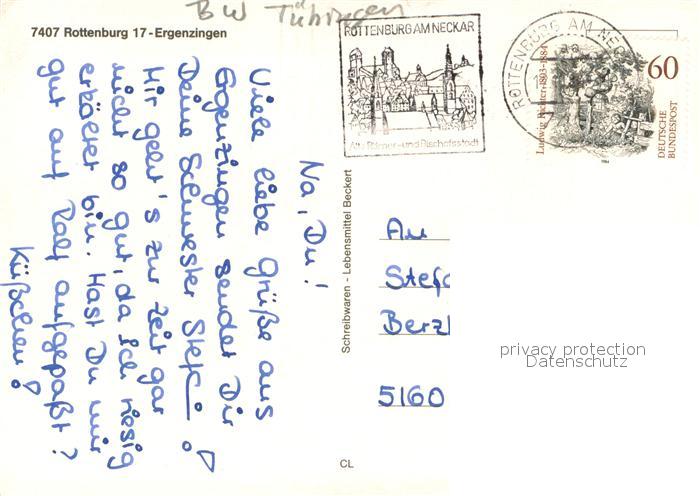 BW Tübingen
7407 Rottenburg 17 - Ergenzingen
ROTTENBURG AM NECKAR
Alte Römer- und Bischofsstadt
ROTTENBURG AM NEC
Ludwig Richter 1803-1884
60
DEUTSCHE
BUNDESPOST
1984
Na, Du!
Viele liebe Grüße aus
Ergenzingen sendet Dir
Deine Schwester Stefi!
Mir geht's zur Zeit gar
nicht so gut, da ich riesig
erkältet bin. Hast Du mir
gut auf Ralf aufgepaßt?
Küßchen!
Schreibwaren - Lebensmittel Beckert
An
Stefa
Berzl
5160
privacy protection
Datenschutz
CL